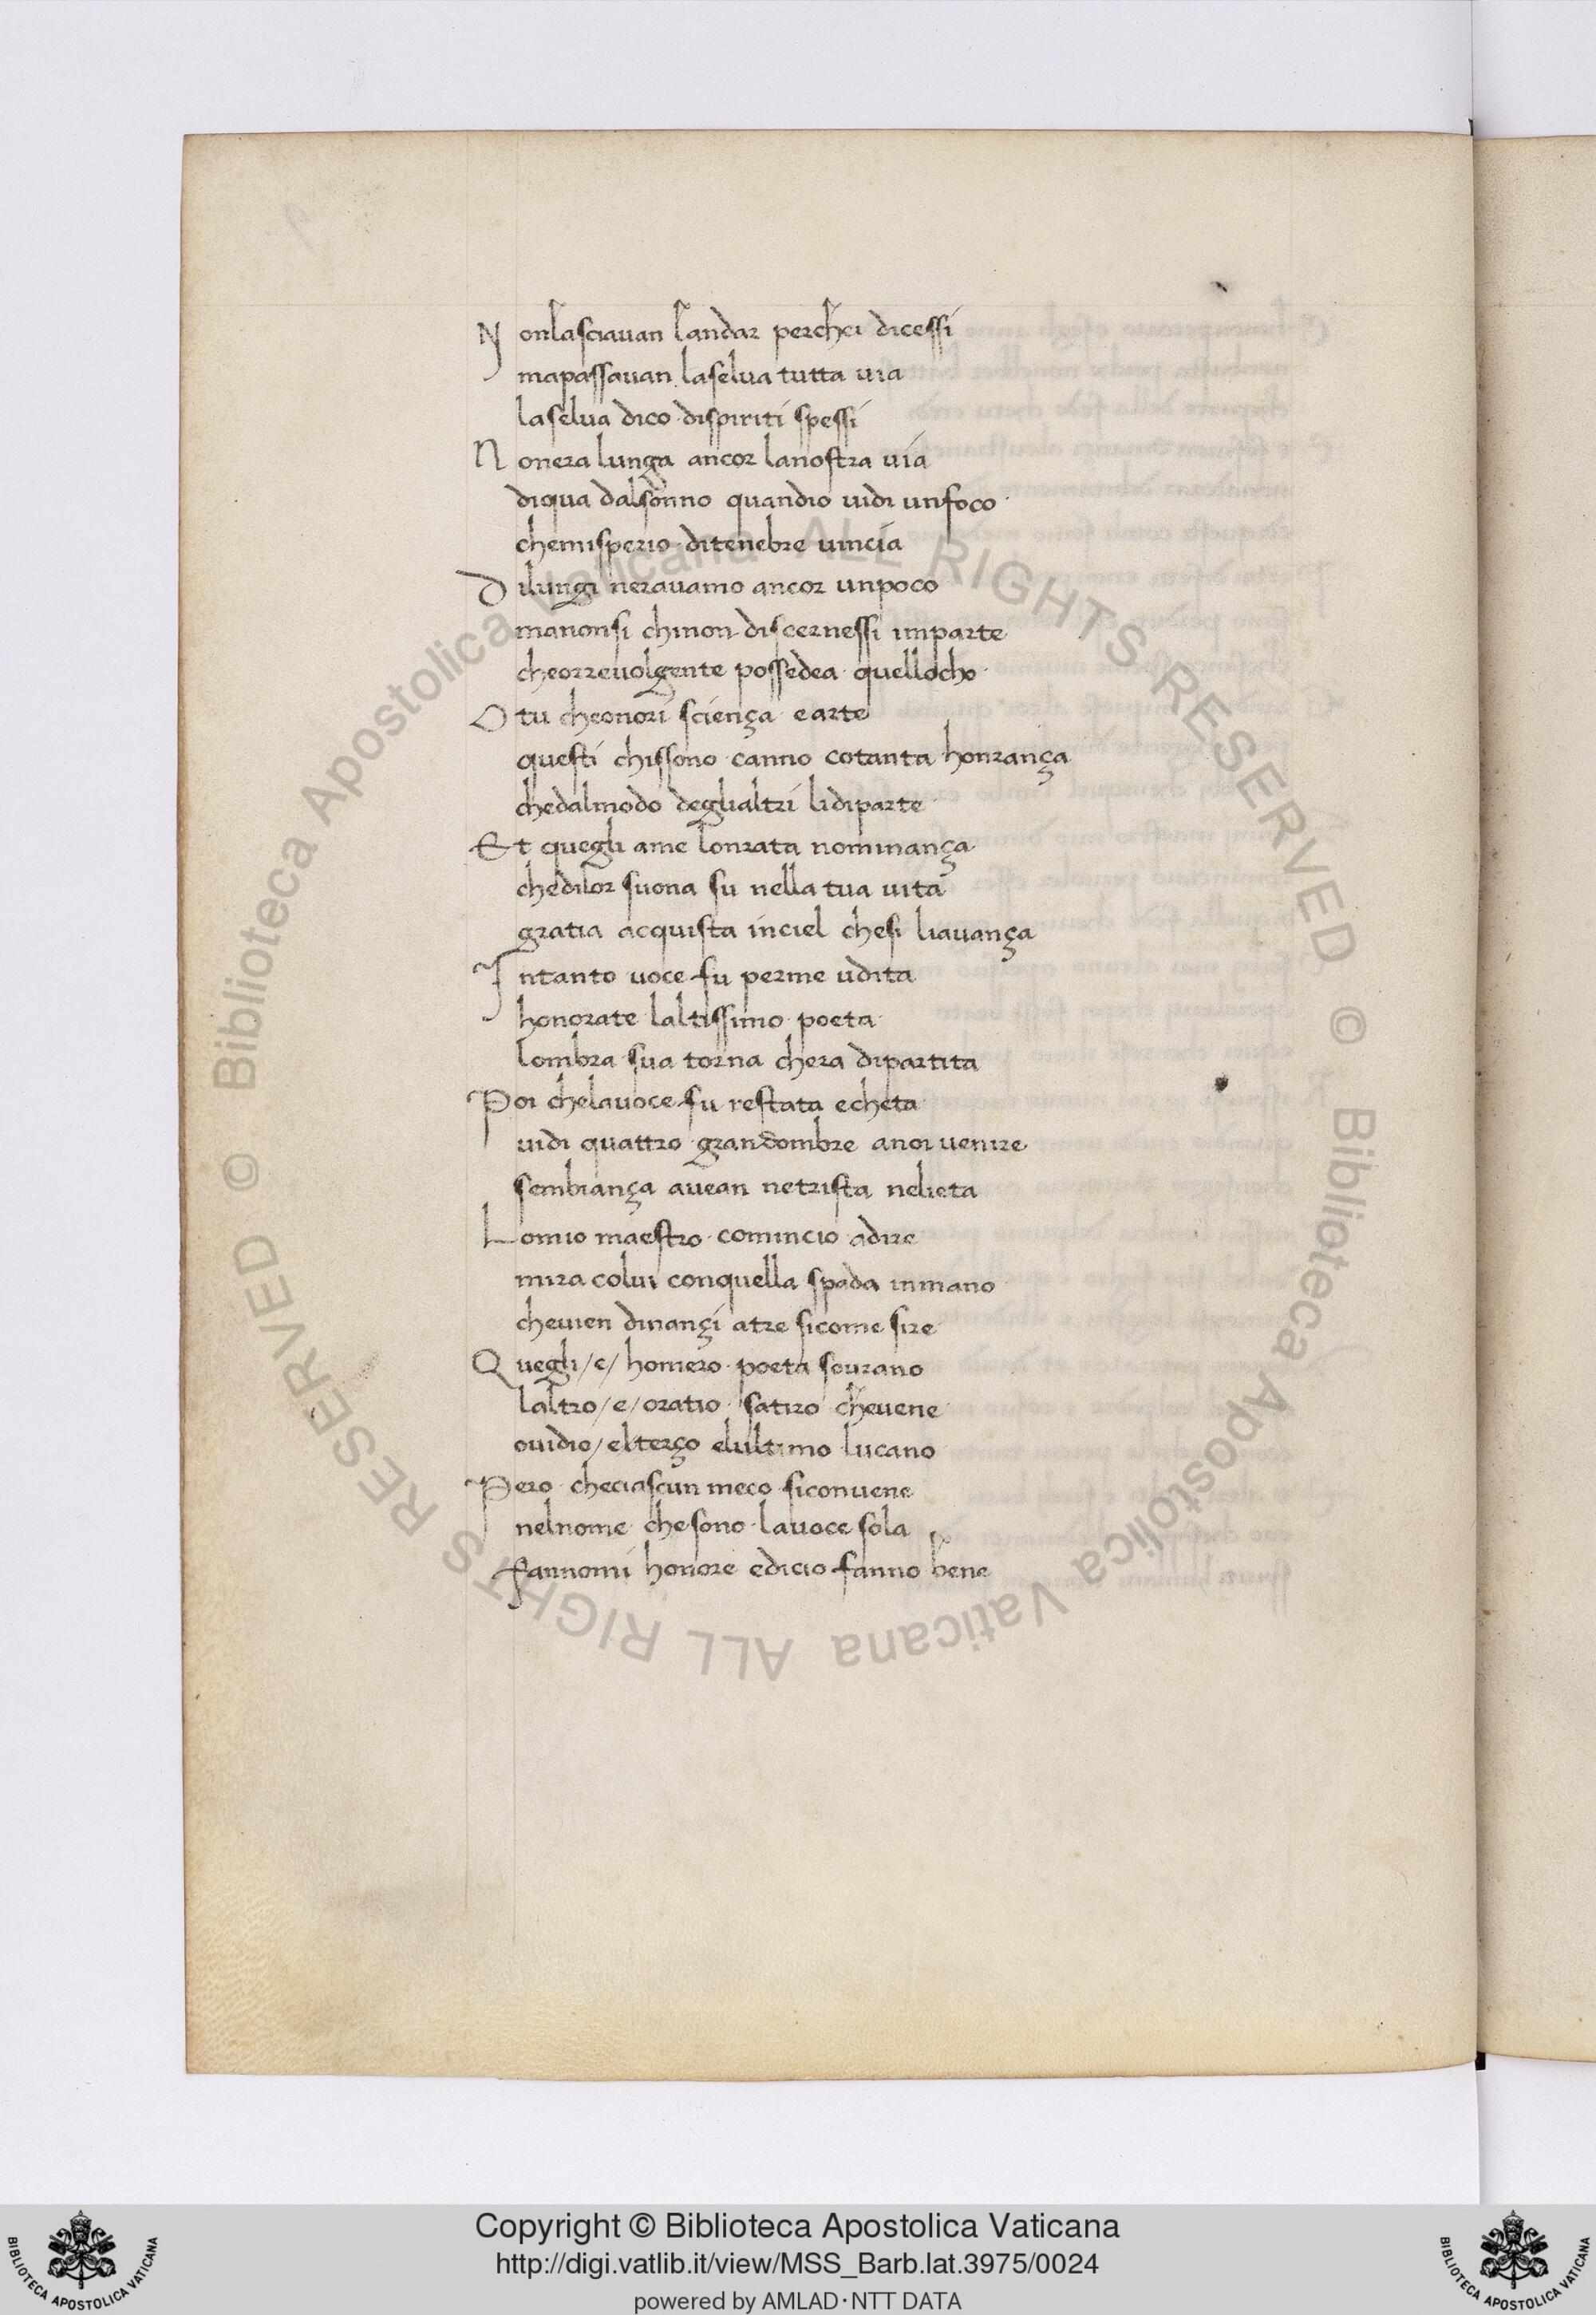 Nonlasciauan landar perchei dicessi
mapassauan laselua tutta uia
laselua dico dispiriti spessi
Nonera lunga ancor lanostra uia
diqua dalsonno quandio uidi unfoco
chemisperio ditenebre uincia
Dilungi nerauamo ancor unpoco
manonsi chinon discernessi imparte
cheorreuolgente possedea quellocho
O tu cheonori sciença earte
questi chissono canno cotanta honrança
chedalmodo deglialtri lidiparte
Et quegli ame lonrata nominança
chedilor suona su nella tua uita
gratia acquista inciel chesi liauança
Intanto uoce fu perme udita
honorate laltissimo poeta
lombra sua torna chera dipartita
Poi chelauoce fu restata echeta
uidi quattro grandombre anoi uenire
sembiança auean netrista nelieta
Lomio maestro comincio adire
mira colui conquella spada inmano
cheuien dinançi atre sicome sire
Quegli/e/ homero poeta sourano
laltro/e/oratio satiro cheuene
ouidio/elterço elultimo lucano
Pero checiascun meco siconuene
nelnome chesono lauoce sola
fannomi honore edicio fanno bene
© Biblioteca Apostolica Vaticana ALL RIGHTS RESERVED © Biblioteca Apostolica Vaticana ALL RIGHTS RESERVED
Copyright © Biblioteca Apostolica Vaticana
http://digi.vatlib.it/view/MSS_Barb.lat.3975/0024
powered by AMLAD·NTT DATA
BIBLIOTECA APOSTOLICA VATICANA
BIBLIOTECA APOSTOLICA VATICANA